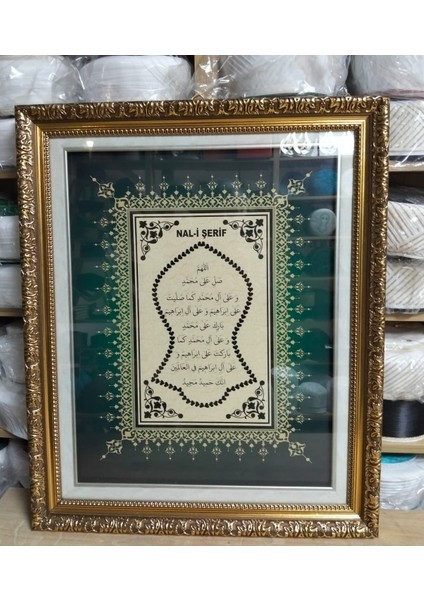 NAL-İ ŞERİF
اللهم
صل على محمد
و على آل محمد كما صليت
على إبراهيم و على آل إبراهيم
بارك على محمد
و على آل محمد كما
باركت على إبراهيم و
على آل إبراهيم في العالمين
إنك حميد مجيد